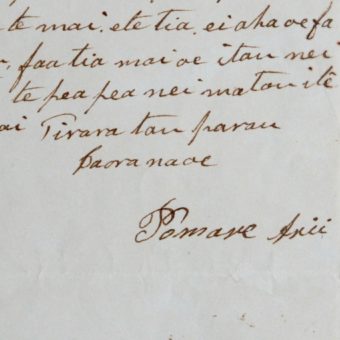 te mai. ete tia. ei aha oe fa
faa tia mai oe i tau nei
te pea pea nei matou i te
oi Tirara tau parau
Iaora na oe
Pomare Arii